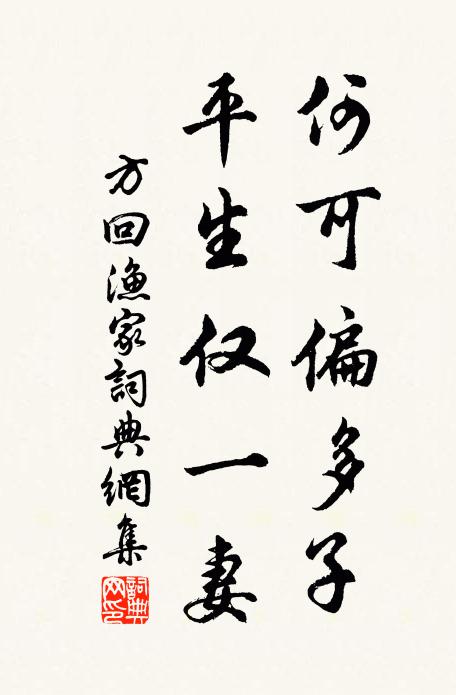 何可偏多子
平生仅一妻
方回渔家詞典網集
詞典網印